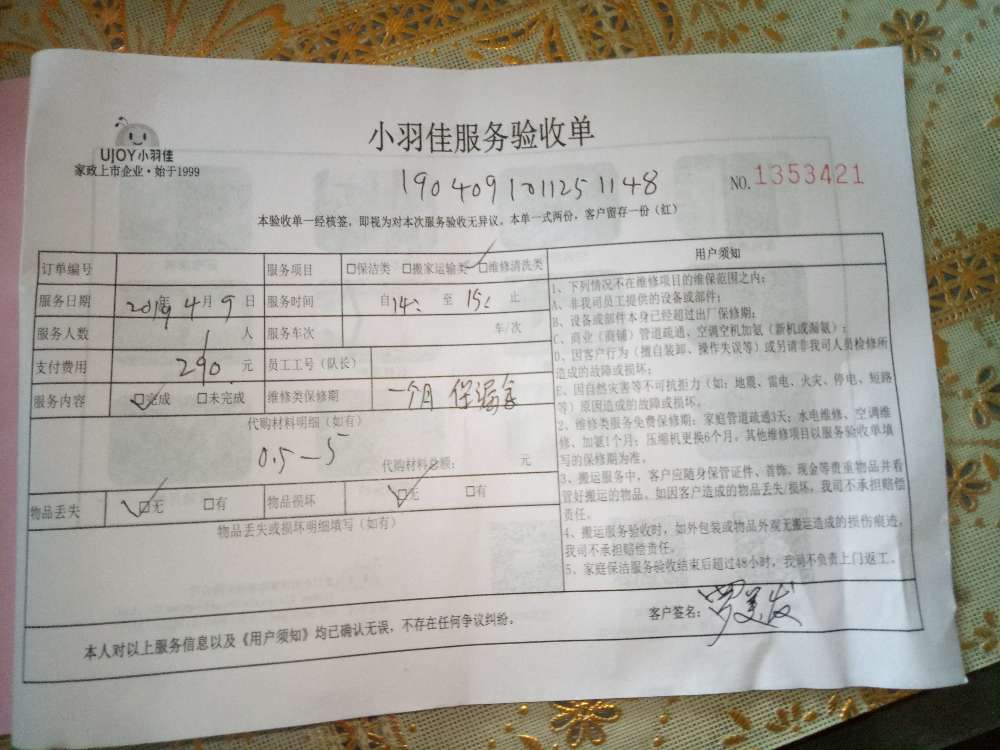 UJOY小羽佳
家政上市企业·始于1999
小羽佳服务验收单
190409101125 1148
NO.1353421
本验收单一经核签，即视为对本次服务验收无异议。本单一式两份，客户留存一份（红）
订单编号
服务项目 □保洁类 □搬家运输类 □维修清洗类
服务日期 2019年4月9日 服务时间 自14: 至15: 止
服务人数 1人 服务车次 车/次
支付费用 290.元 员工工号（队长）
服务内容 □完成 □未完成 维修类保修期 一个月 保漏
代购材料明细（如有）
0.5—5 代购材料总额： 元
物品丢失 □无 □有 物品损坏 □无 □有
物品丢失或损坏明细填写（如有）
用户须知
1、下列情况不在维修项目的维保范围之内：
A、非我司员工提供的设备或部件；
B、设备或部件本身已经超过出厂保修期；
C、商业（商铺）管道疏通、空调空机加氨（新机或漏氨）；
D、因客户行为（擅自装卸、操作失误等）或另请非我司人员检修所
造成的故障或损坏；
E、因自然灾害等不可抗拒力（如：地震、雷电、火灾、停电、短路
等）原因造成的故障或损坏。
2、维修类服务免费保修期：家庭管道疏通3天；水电维修、空调维
修、加氨1个月；压缩机更换6个月，其他维修项目以服务验收单填
写的保修期为准。
3、搬运服务中，客户应随身保管证件、首饰、现金等贵重物品并看
管好搬运的物品。如因客户造成的物品丢失/损坏，我司不承担赔偿
责任。
4、搬运服务验收时，如外包装或物品外观无搬运造成的损伤痕迹，
我司不承担赔偿责任。
5、家庭保洁服务验收结束后超过48小时，我司不负责上门返工。
本人对以上服务信息以及《用户须知》均已确认无误，不存在任何争议纠纷。
客户签名：罗美发